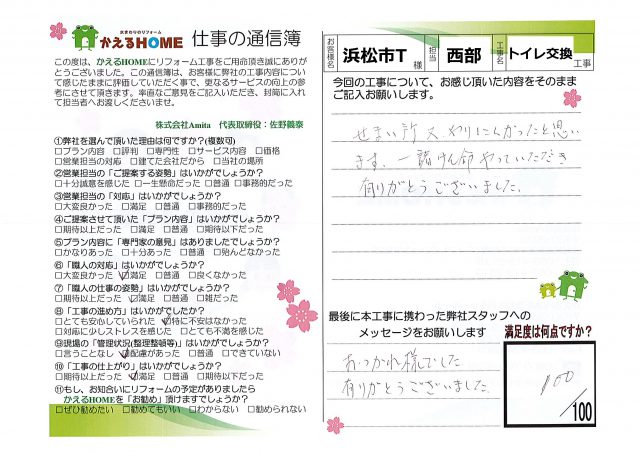 水まわりのリフォーム
かえるHOME 仕事の通信簿
この度は、かえるHOMEにリフォーム工事をご用命頂き誠にありが
とうございました。この通信簿は、お客様に弊社の工事内容につい
て感じたままに評価していただく事で、更なるサービスの向上の参
考にさせて頂きます。率直なご意見をご記入いただき、封筒に入れ
て担当者へお渡しくださいませ。
株式会社Amita 代表取締役：佐野義泰
①弊社を選んで頂いた理由は何ですか?(複数可)
□プラン内容 □評判 □専門性 □サービス内容 □価格
□営業担当の対応 □建てた会社だから □当社の場所
②営業担当の「ご提案する姿勢」はいかがでしょうか?
□十分誠意を感じた □一生懸命だった □普通 □事務的だった
③営業担当の「対応」はいかがでしょうか?
□大変良かった □満足 □普通 □事務的だった
④ご提案させて頂いた「プラン内容」はいかがでしょうか?
□期待以上だった □満足 □普通 □期待以下だった
⑤プラン内容に「専門家の意見」はありましたでしょうか?
□かなりあった □十分あった □普通 □殆んどなかった
⑥「職人の対応」はいかがでしょうか?
□大変良かった ☑満足 □普通 □良くなかった
⑦「職人の仕事の姿勢」はいかがでしょうか?
□期待以上だった ☑満足 □普通 □雑だった
⑧「工事の進め方」はいかがでしたか?
□とても安心していられた ☑特に不安はなかった
□対応に少しストレスを感じた □とても不満を感じた
⑨現場の「管理状況(整理整頓等)」はいかがでしょうか?
□言うことなし ☑配慮があった □普通 □できていない
⑩「工事の仕上がり」はいかがでしょうか?
□期待以上だった ☑満足 □普通 □期待以下だった
⑪もし、お知合いにリフォームの予定がありましたら
かえるHOMEを「お勧め」頂けますでしょうか?
□ぜひ勧めたい □勧めてもいい □わからない □勧められない
お客様名 浜松市T 様 担当 西部 工事名 トイレ交換 工事
今回の工事について、お感じ頂いた内容をそのまま
ご記入お願いします。
せまい所で、やりにくかったと思い
ます。一諸けん命やっていただき
有りがとうございました。
最後に本工事に携わった弊社スタッフへの
メッセージをお願いします
満足度は何点ですか?
おつかれ様でした
有りがとうございました。
100
/100